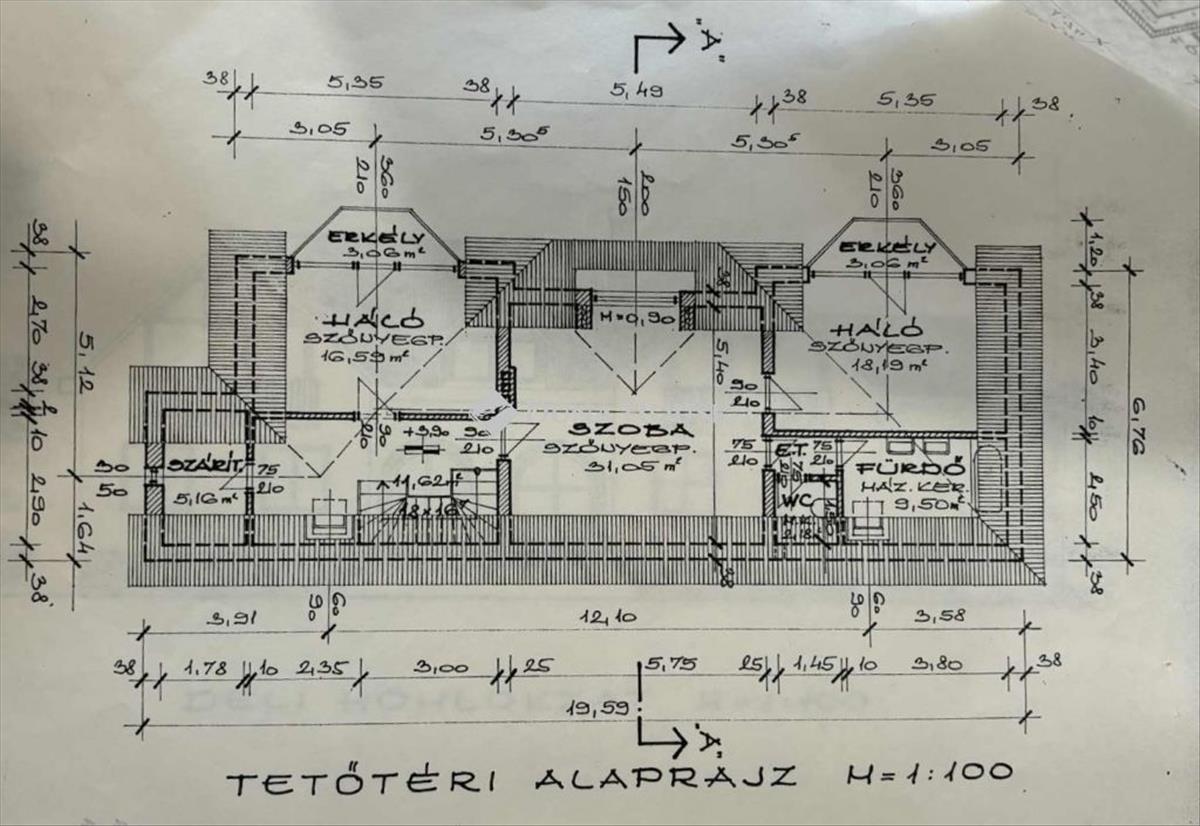 "A"
38 5,35 38 5,49 38 5,35 38
3,05 5,30⁵ 5,30⁵ 3,05
360
210
200
150
360
210
ERKÉLY
3,06 m²
ERKÉLY
3,06 m²
38 2,70 38 10 2,90 38
5,12 1,64
1,20 38 3,40 10 2,50 38
6,76
HÁLÓ
SZŐNYEGP.
16,59 m²
M=0,90
38
5,40
38
HÁLÓ
SZŐNYEGP.
18,19 m²
90
210
90
210
+3,90
90
210
SZOBA
SZŐNYEGP.
31,05 m²
SZÁRÍT.
5,16 m²
75
210
30
50
11,62 m²
18×16
75
210
É.T.
75
210
WC
2,18
FÜRDŐ
HÁZ. KER.
9,50 m²
60
90
60
90
3,91 12,10 3,58
38 1,78 10 2,35 3,00 25 5,75 25 1,45 10 3,80 38
19,59
"A"
TETŐTÉRI ALAPRAJZ M=1:100